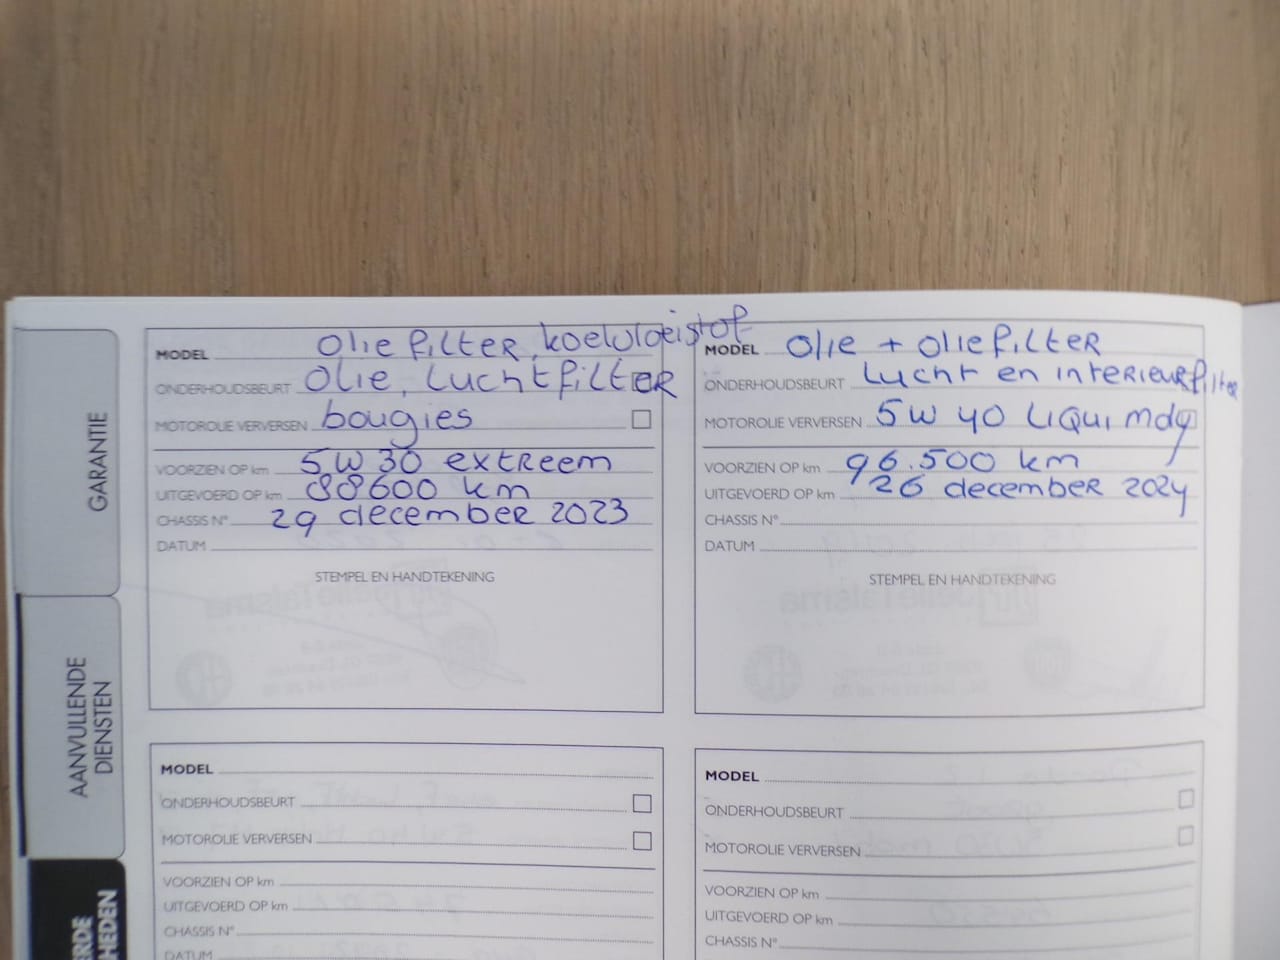 GARANTIE
AANVULLENDE
DIENSTEN
ERDE
HEDEN
MODEL Oliefilter, koelvloeistof
ONDERHOUDSBEURT Olie, Luchtfilter
MOTOROLIE VERVERSEN bougies
VOORZIEN OP km 5W30 extreem
UITGEVOERD OP km 88600 km
CHASSIS N° 29 december 2023
DATUM
STEMPEL EN HANDTEKENING
MODEL Olie + Oliefilter
ONDERHOUDSBEURT Lucht en interieurfilter
MOTOROLIE VERVERSEN 5W40 Liqui moly
VOORZIEN OP km 96.500 km
UITGEVOERD OP km 26 december 2024
CHASSIS N°
DATUM
STEMPEL EN HANDTEKENING
MODEL
ONDERHOUDSBEURT
MOTOROLIE VERVERSEN
VOORZIEN OP km
UITGEVOERD OP km
CHASSIS N°
DATUM
MODEL
ONDERHOUDSBEURT
MOTOROLIE VERVERSEN
VOORZIEN OP km
UITGEVOERD OP km
CHASSIS N°